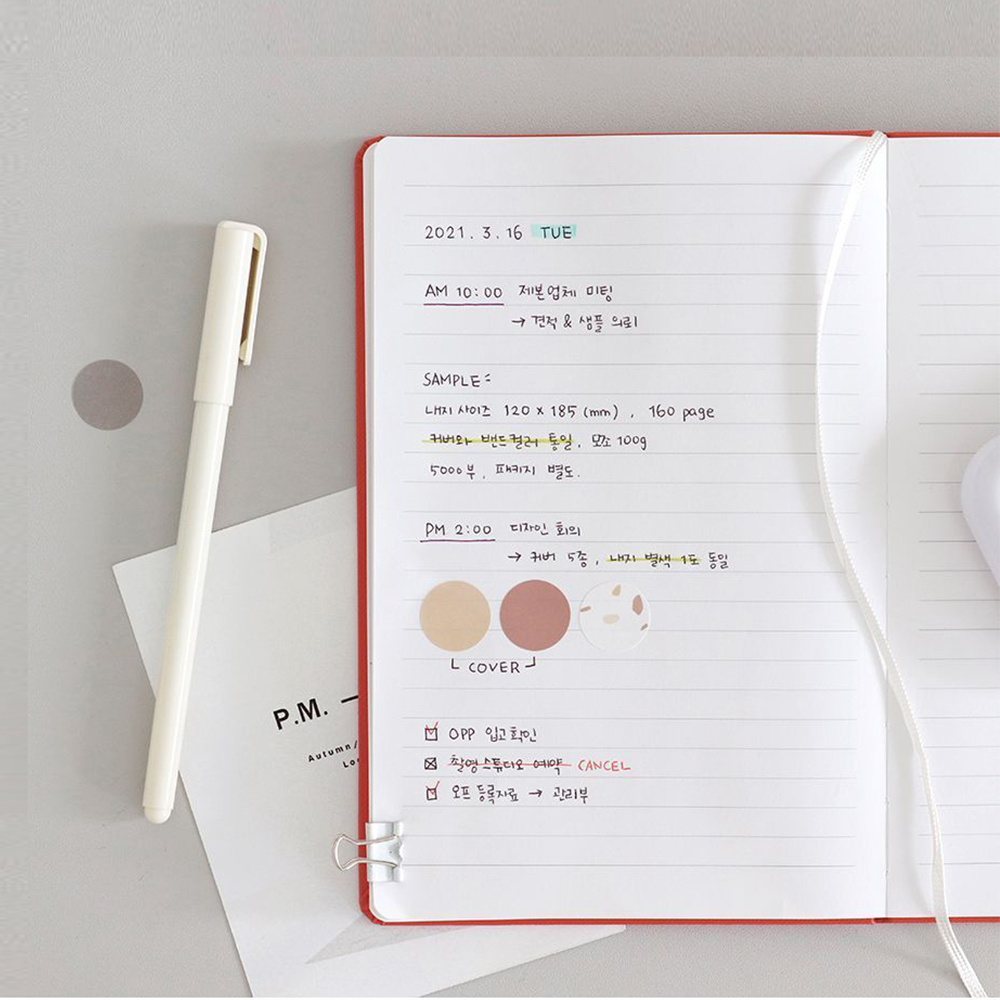 2021. 3. 16 TUE
AM 10:00 제본업체 미팅
→ 견적 & 샘플 의뢰
SAMPLE:
내지 사이즈 120 x 185 (mm) , 160 page
커버와 밴드컬러 통일, 모조 100g
5000부, 패키지 별도.
PM 2:00 디자인 회의
→ 커버 5종, 내지 별색 1도 동일
COVER
OPP 입고확인
촬영스튜디오 예약 CANCEL
오프 등록자료 → 관리부
P.M. —
Autumn/